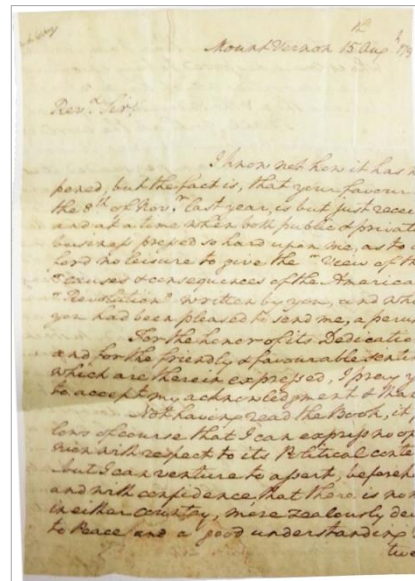 Mount Vernon 15th Augst 179
Revd Sir,
I know not how it has
pened, but the fact is, that your favour
the 8th of Novr last year, is but just rece
and at a time when both public & privat
business pressed so hard upon me, as to
ford no leisure to give the "View of th
"causes & consequences of the America
"Revolution" written by you, and wh
you had been pleased to send me, a peru
For the honor of its Dedicatio
and for the friendly & favourable senti
which are therein expressed, I pray y
to accept my acknowledgment & than
Not having read the Book, it
lows of course that I can express no op
nion with respect to its Political conte
but I can venture to assert, beforeh
and with confidence, that there is no
in either country, more zealously de
to Peace and a good understanding
twe